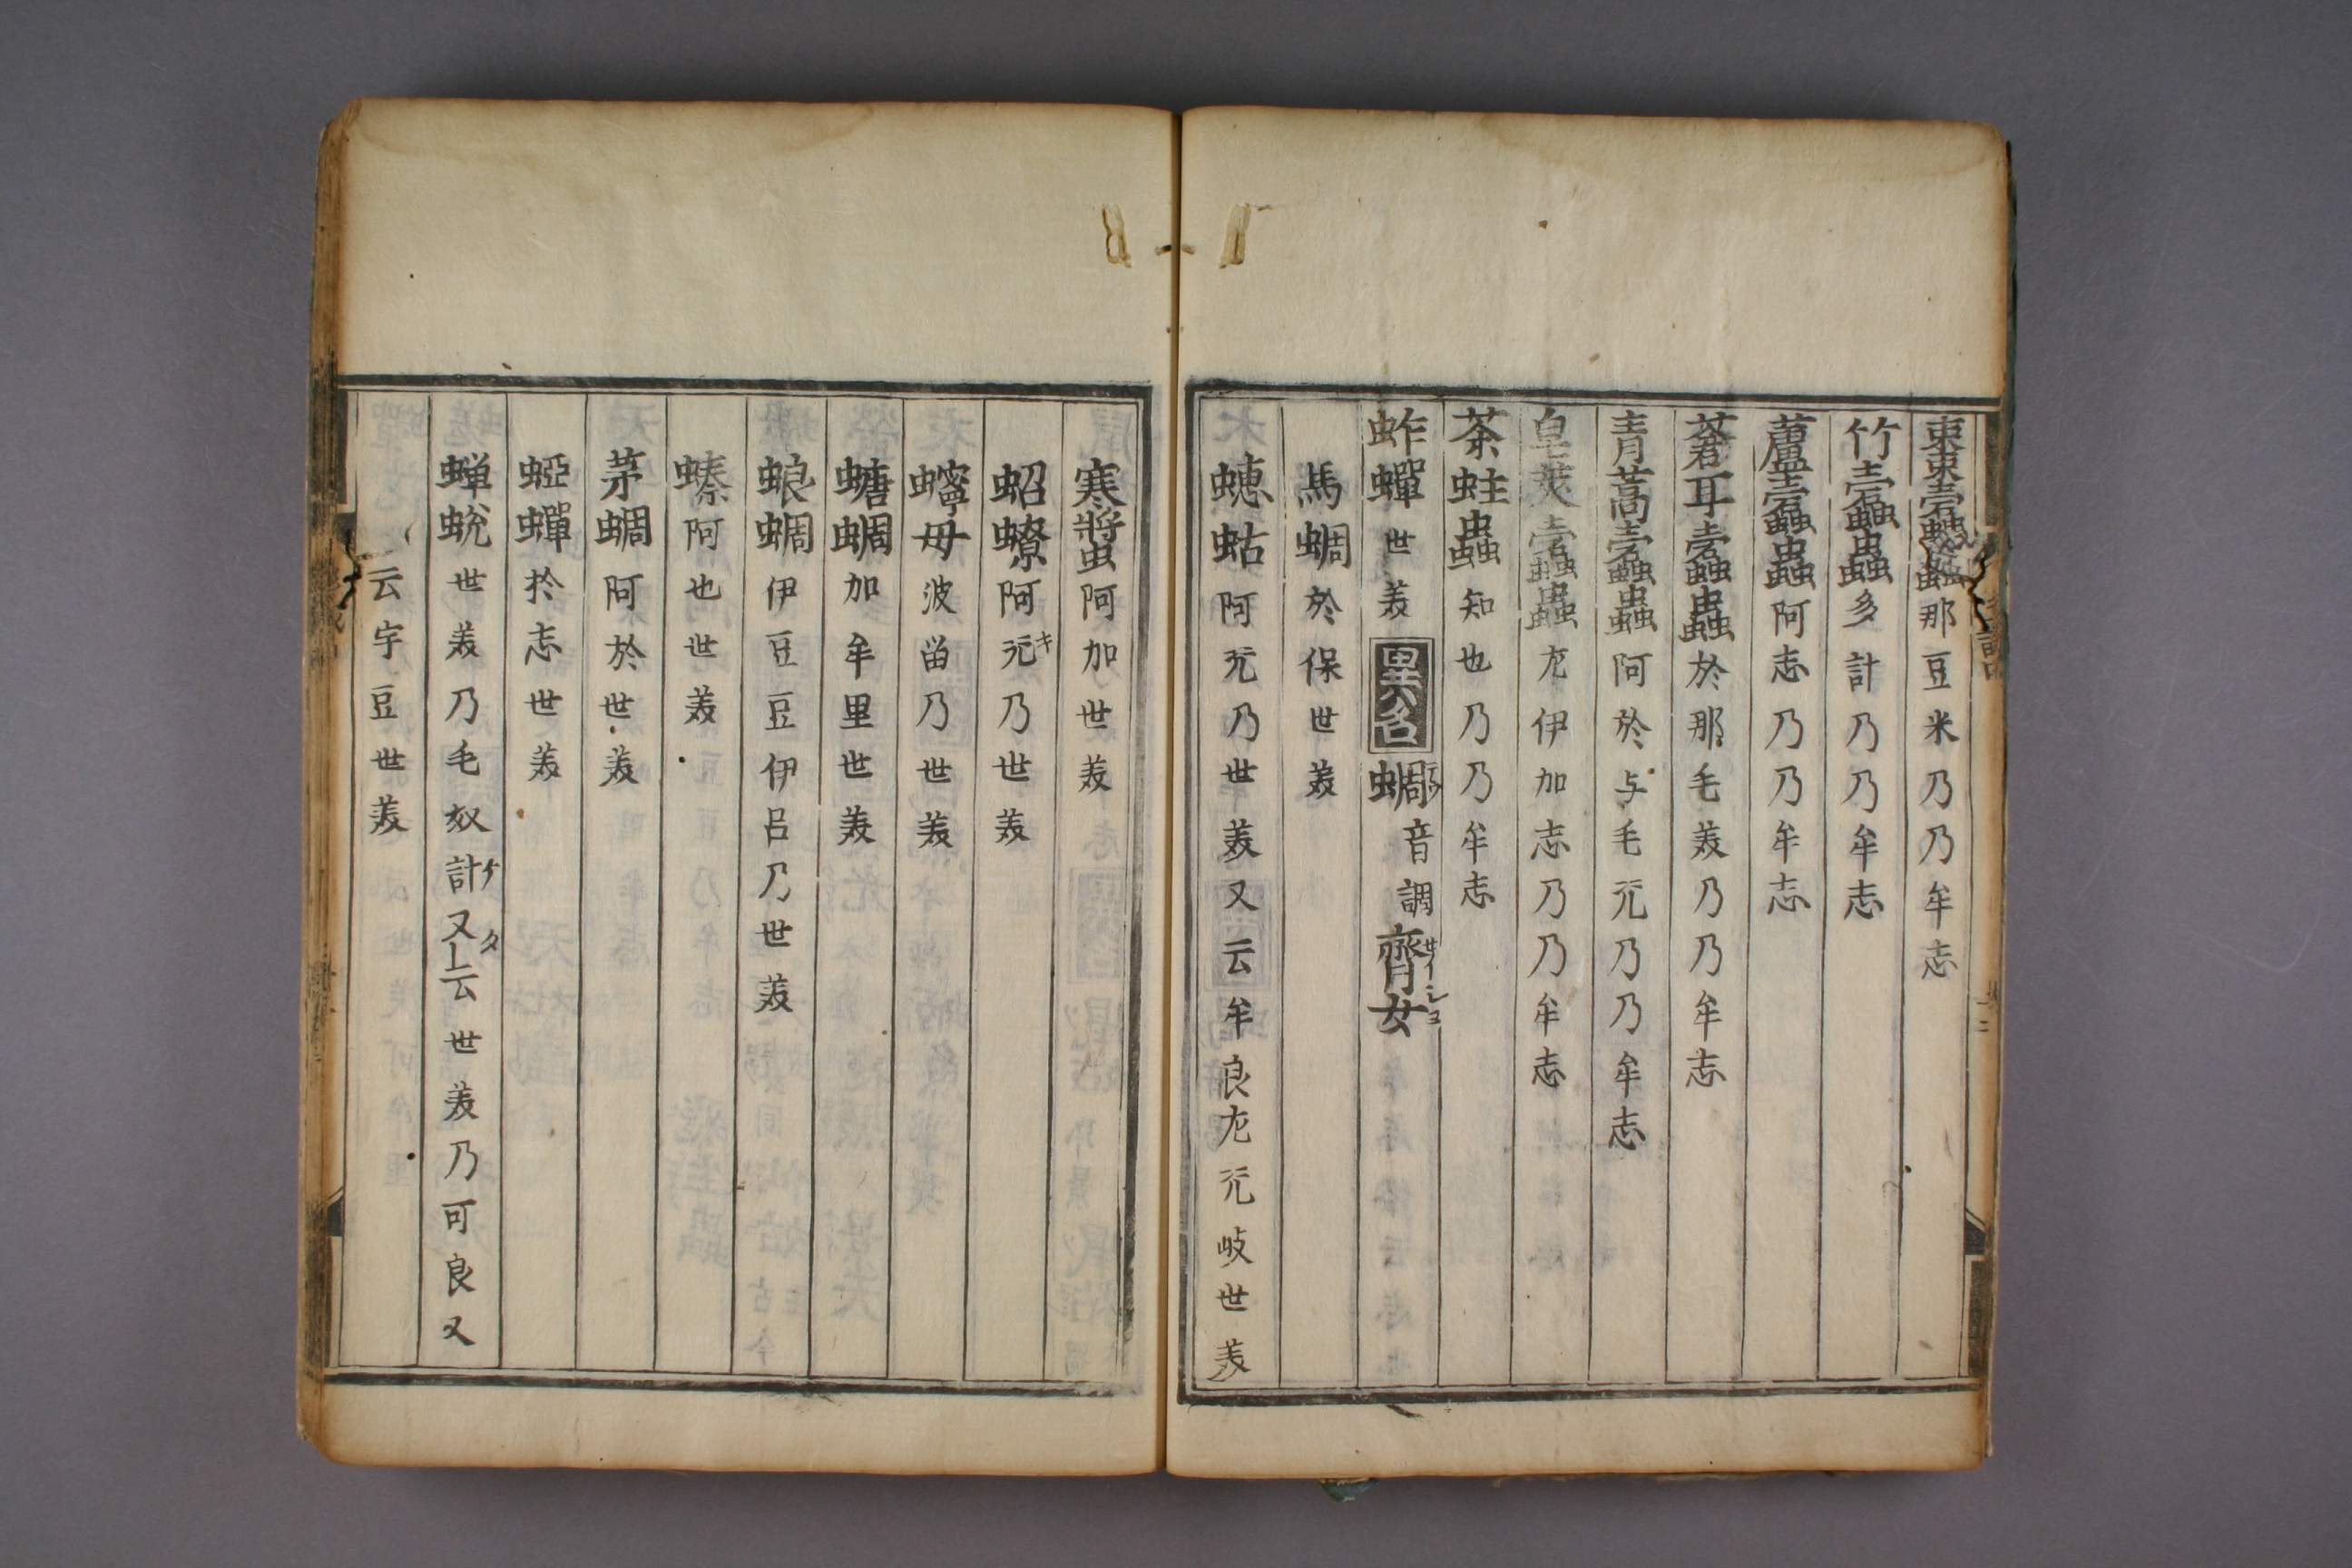 棗蠹蟲那豆米乃乃牟志
竹蠹蟲多計乃乃牟志
蘆蠹蟲阿志乃乃牟志
蒼耳蠹蟲於那毛美乃乃牟志
青蒿蠹蟲阿於与毛冗乃乃牟志
皂莢蠹蟲左伊加志乃乃牟志
茶蛀蟲知也乃乃牟志
蚱蟬世美異名蜩音調齊女セイシヨ
馬蜩於保世美
蟪蛄阿冗乃世美又云牟良左冗岐世美
寒螿阿加世美
蛁蟟阿冗キ乃世美
蠽母波畄乃世美
螗蜩加牟里世美
蜋蜩伊豆豆伊呂乃世美
螓阿也世美
茅蜩阿於世美
蝁蟬於志世美
蝉蛻世美乃毛奴計ケ又云世美乃可良又
云宇豆世美